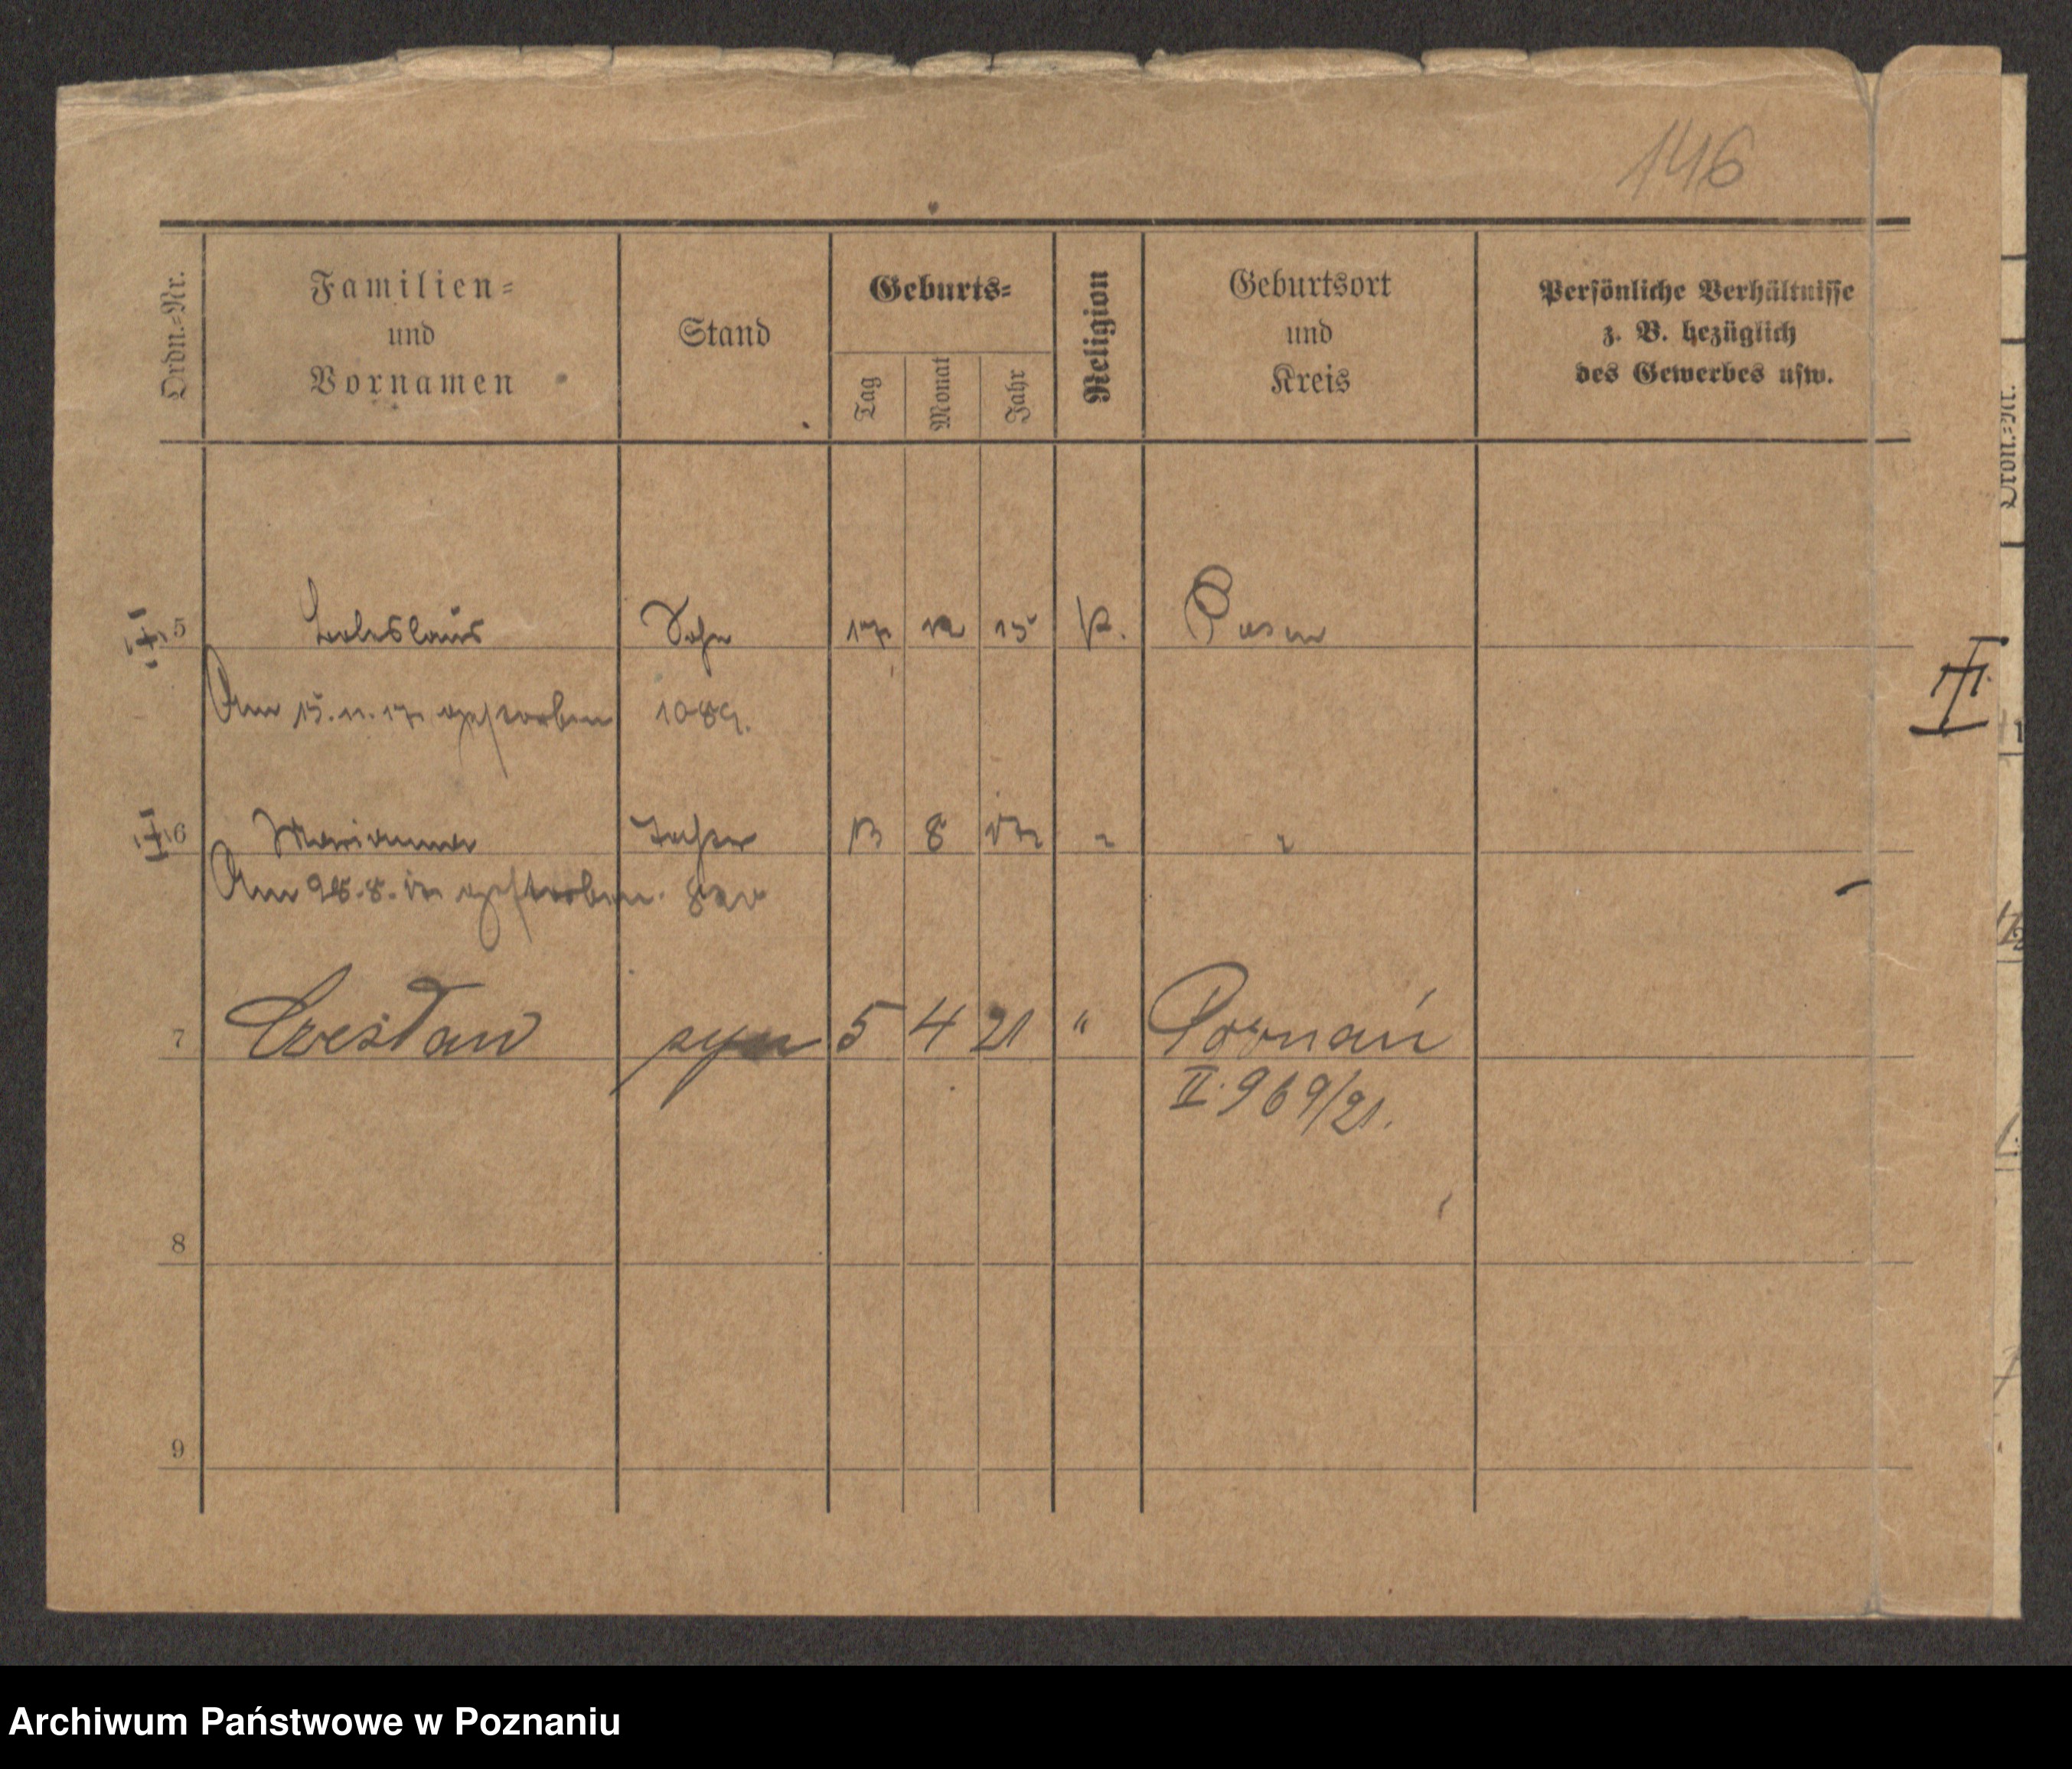 146
Ordn.=Nr.
Familien=
und
Vornamen
Stand
Geburts=
Tag
Monat
Jahr
Religion
Geburtsort
und
Kreis
Persönliche Verhältnisse
z. B. bezüglich
des Gewerbes usw.
Ordn.=Nr.
5 Boleslaus Sohn 17 12 15 k. Posen
Am 15.11.17 gestorben 1089.
6 Marianna Tochter 13 8 17 " "
Am 28.8. gestorben.
7 Czesław syn 5 4 21 " Poznań
II. 969/21.
8
9
Archiwum Państwowe w Poznaniu